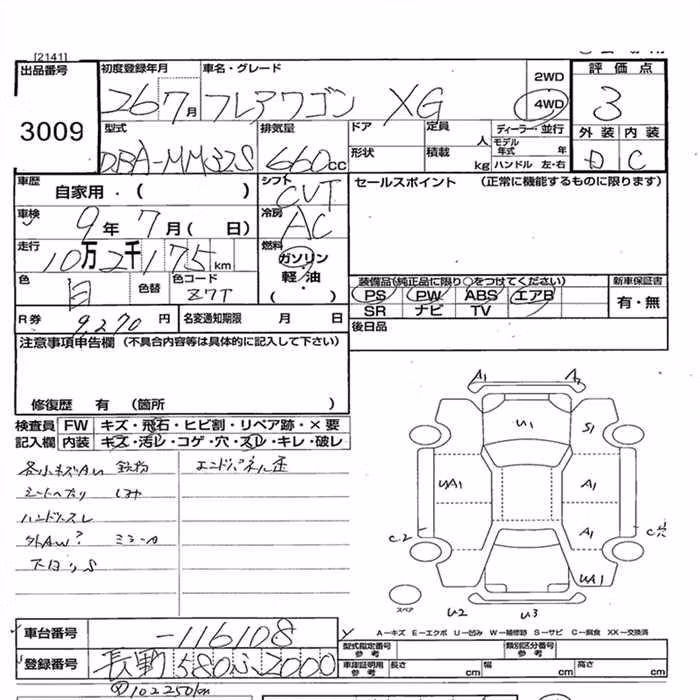 [2141]
出品番号
3009
初度登録年月 車名・グレード
26 7月 フレアワゴン XG
2WD
4WD
評価点
3
外装 内装
D C
型式 排気量
DBA-MM32S 660cc
ドア 定員 人
形状 積載 kg
ディーラー・並行
モデル年式 年
ハンドル 左・右
車歴 自家用・( )
シフト CVT
車検 9年 7月 ( 日)
冷房 AC
走行 10万2千175 km
燃料 ガソリン
軽・油
・
( )
色 白 色替 色コード Z7T
R券 9,270 円 名変通知期限 月 日
セールスポイント (正常に機能するものに限ります)
装備品(純正品に限り○をつけてください)
PS PW ABS エアB
SR ナビ TV
新車保証書
有・無
後日品
注意事項申告欄 (不具合内容等は具体的に記入して下さい)
修復歴 有 (箇所 )
検査員 FW キズ・飛石・ヒビ割・リペア跡・×要
記入欄 内装 キズ・汚レ・コゲ・穴・スレ・キレ・破レ
各小キズAU 鉄粉 エンドパネル歪
シートヘタリ シミ
ハンドルスレ
外AW? ミラーA
下回りS
A1 A2
U1 S1
UA1 A1
C2 A1
UA1
スペア
U2 U3
A-キズ E-エクボ U-凹み W-補修跡 S-サビ C-腐食 XX-交換済
車台番号 -116108
登録番号 長野 580ふ2000
型式指定番号 類別区分番号
車庫証明用参考 長さ cm 幅 cm 高さ cm
102250km